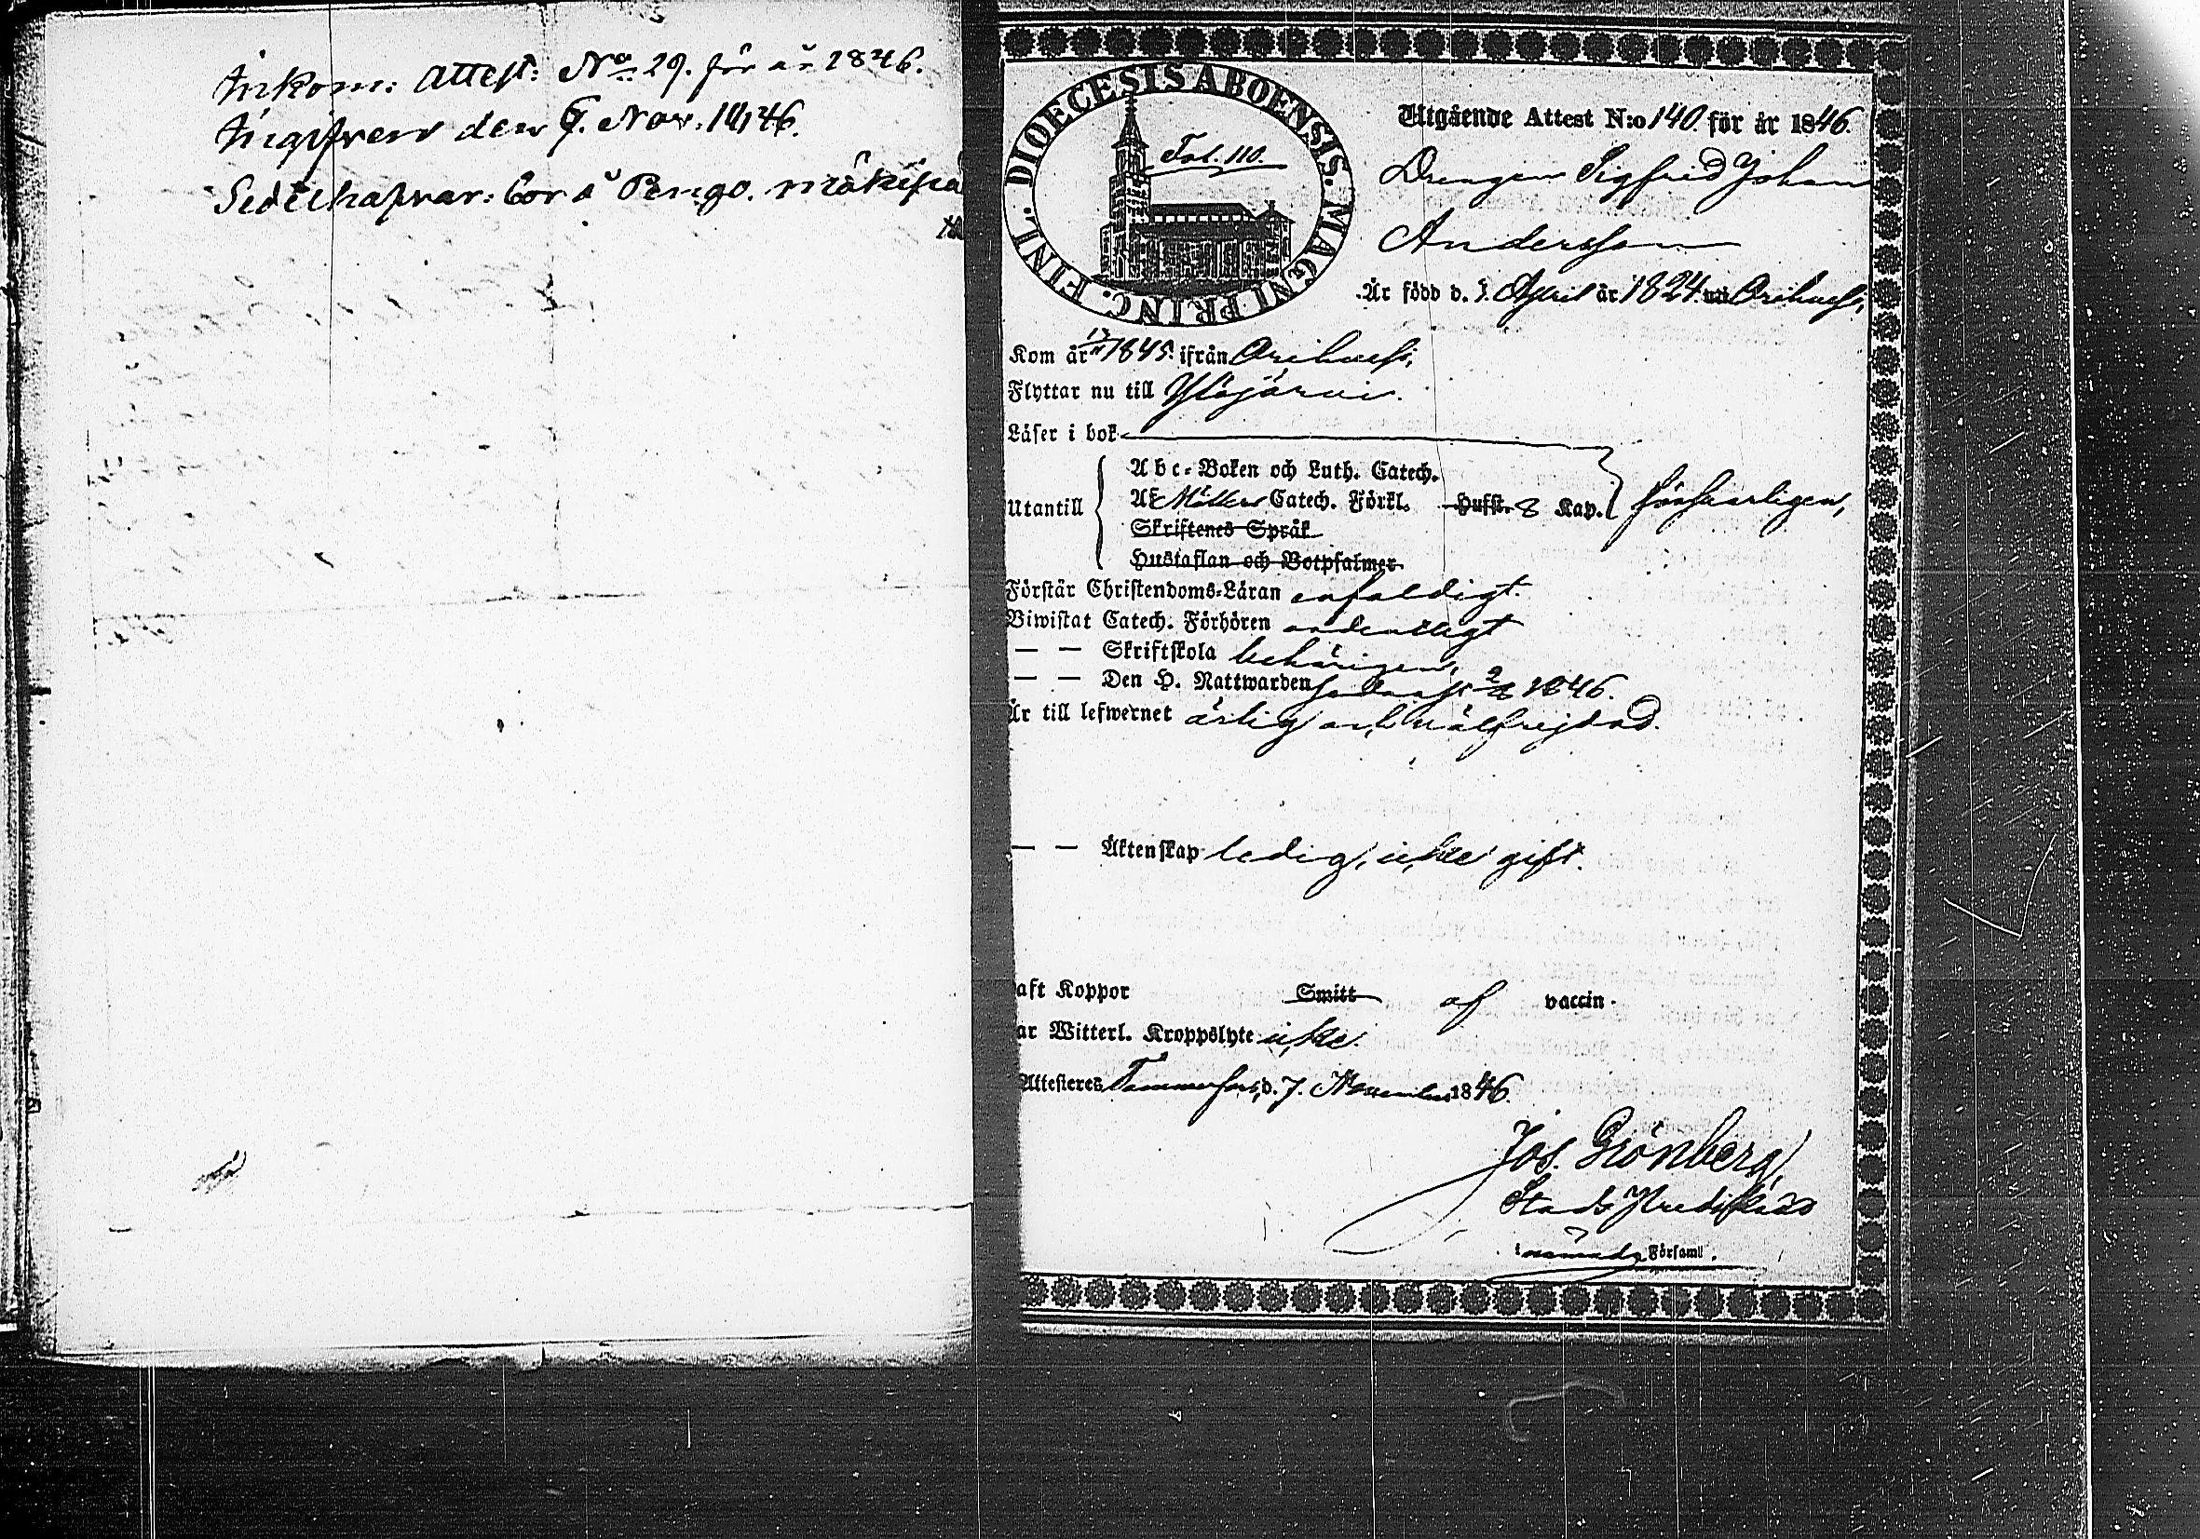 Inkom: Attest: No 29. för år 1846.
den 7. Nov. 1846.
Sedelhafvar: bor å
DIOECESIS ABOENSIS. MAGNI PRINC. FINL.
Fol. 110.
Utgående Attest N:o 140. för år 1846.
Drengen Sigfrid Johan
Andersson
Är född d. 5. April år 1824. uti Orihvesi,
Kom år 1845. ifrån Orihvesi,
Flyttar nu till Ylöjärvi.
Läser i bok
Utantill
Abc-Boken och Luth. Catech.
Af Möllers Catech. Förkl. Hufst. 8 Kap. försvarligen,
Skriftenes Språk
Hustaflan och Botpsalmer
Förstår Christendoms-Läran enfaldigt.
Biwistat Catech. Förhören ordentligt
— — Skriftskola behörigen,
— — Den H. Nattwarden sednast 2/8 1846.
Är till lefwernet ärlig och välfrejdad.
— — Äktenskap ledig, icke gift.
aft Koppor Smitt af vaccin.
ar Witterl. Kroppslyte icke.
Attesteres Tammerfors, d. 7. November 1846.
Jos. Grönberg
Stads Predikant
i nämnde Församl.